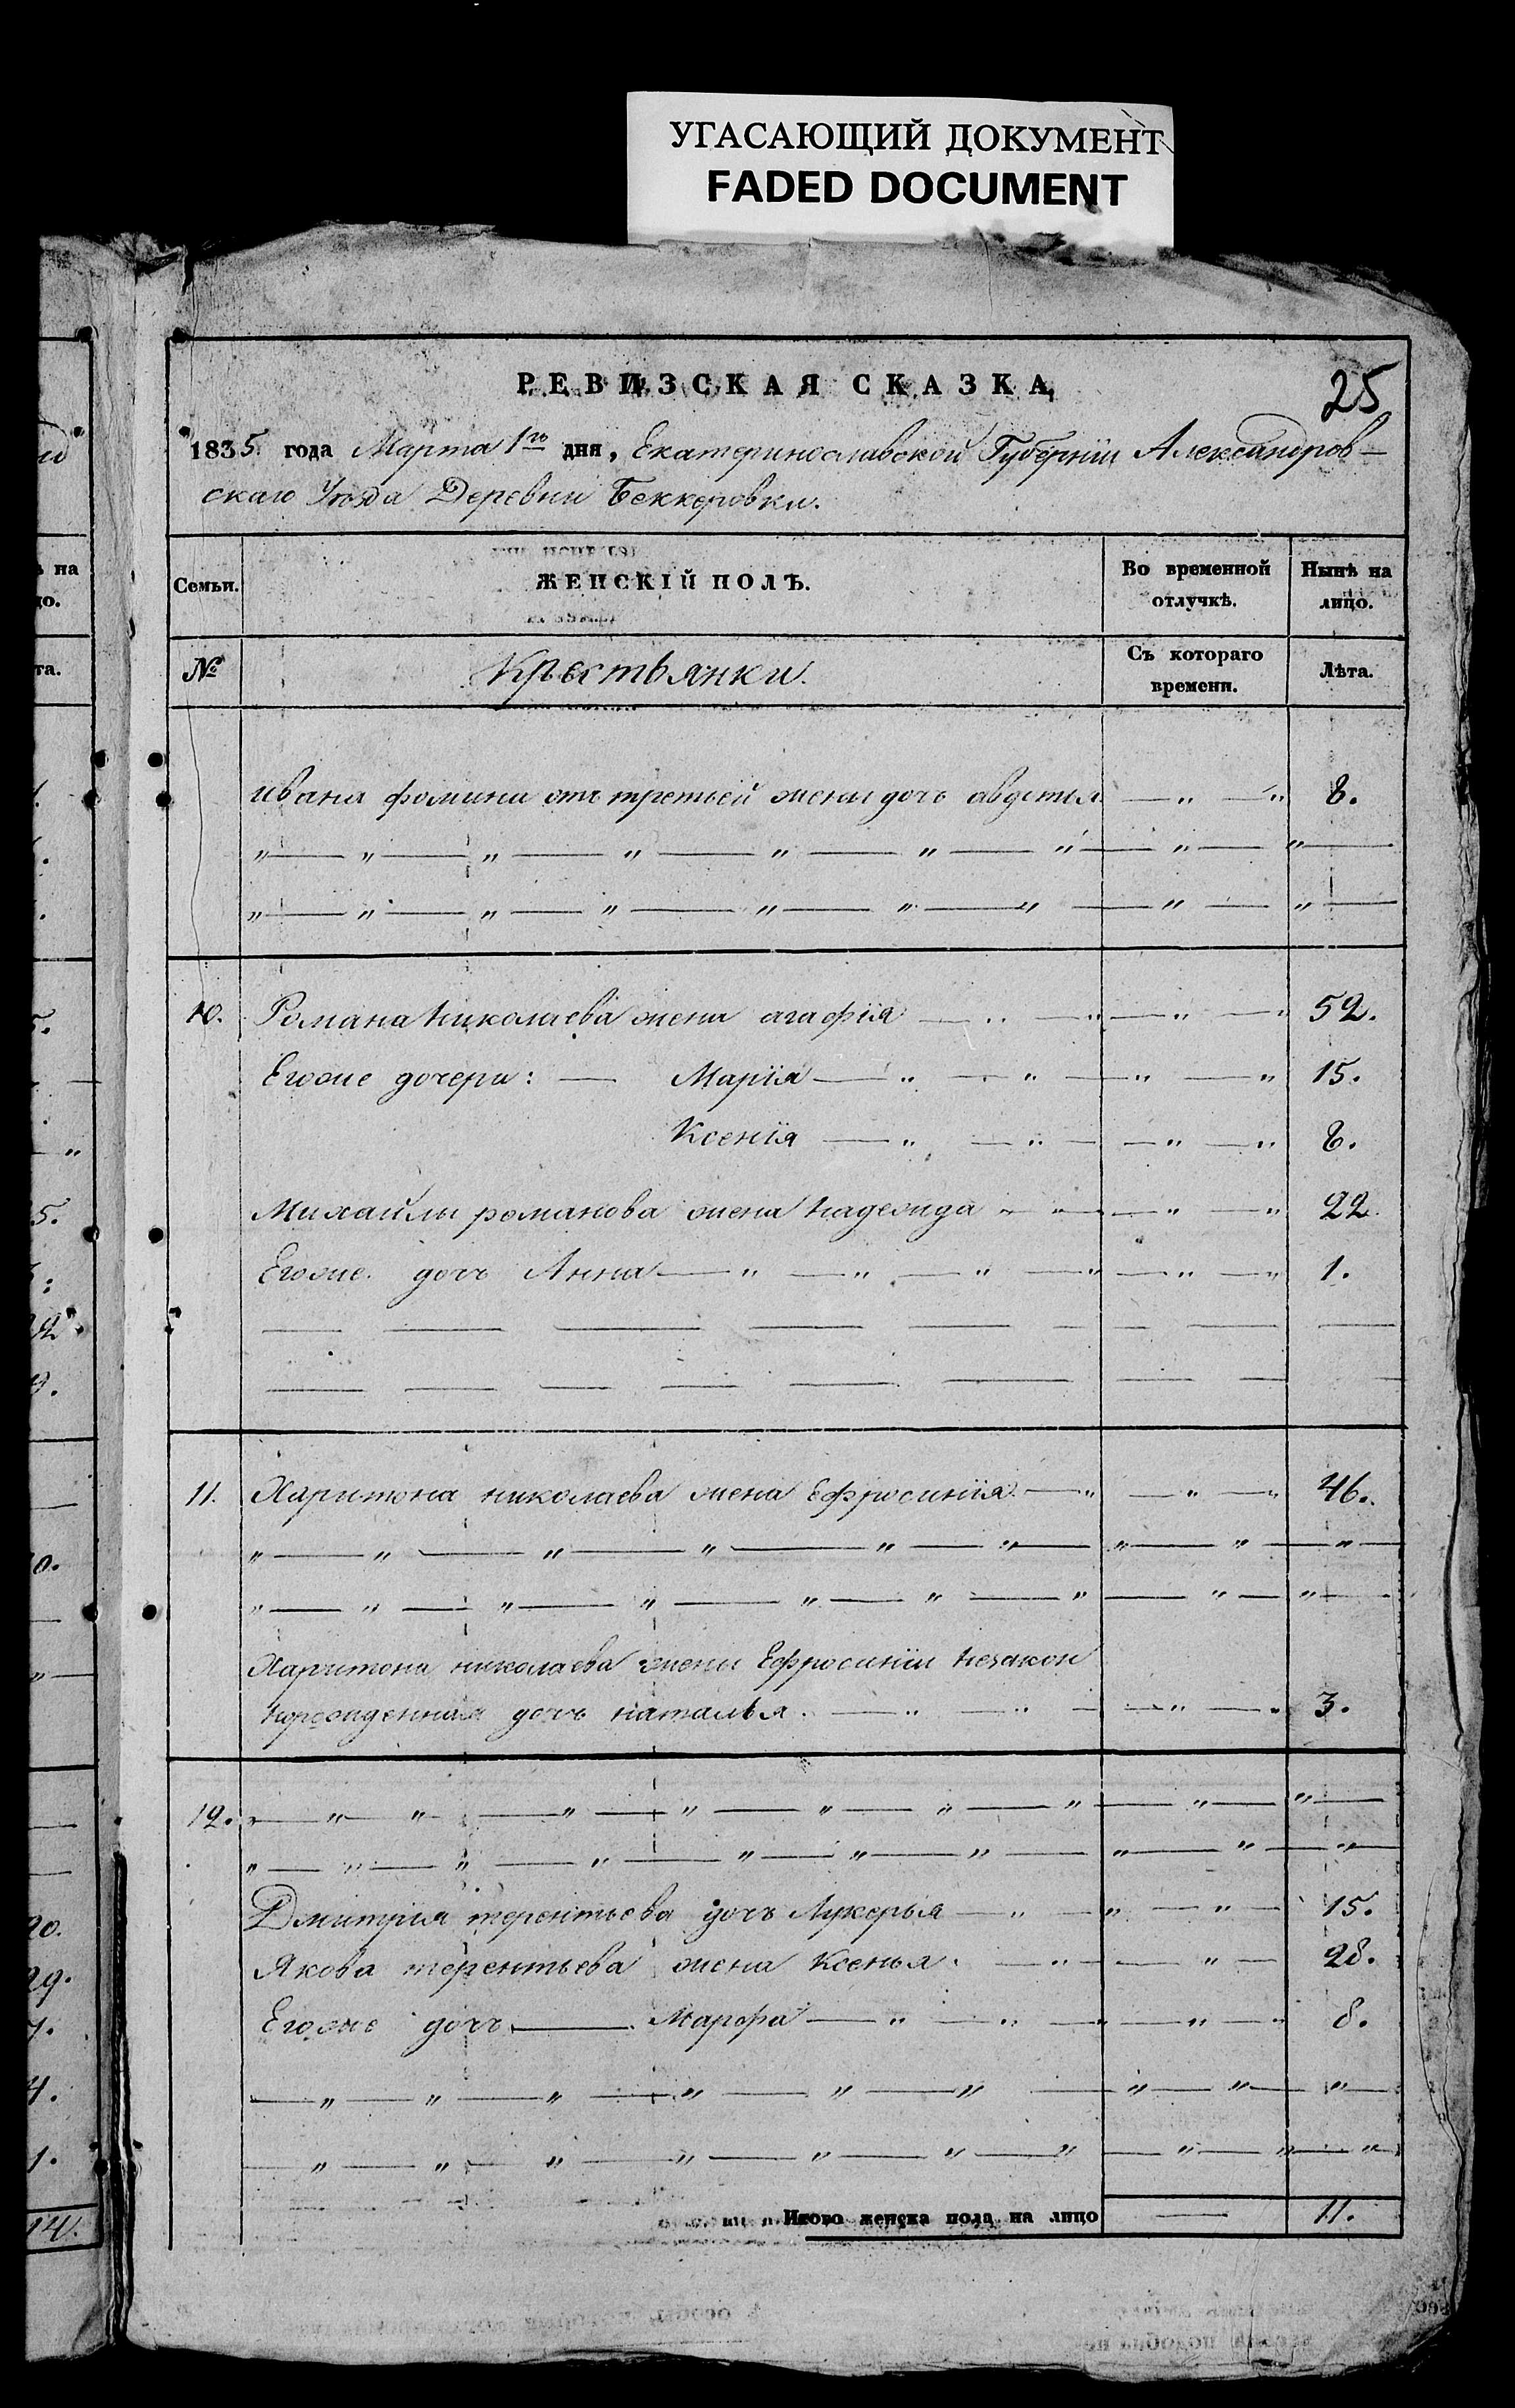 УГАСАЮЩИЙ ДОКУМЕНТ
FADED DOCUMENT
РЕВИЗСКАЯ СКАЗКА
25
1835 года Марта 1го дня, Екатеринославской Губернiи Александров-
скаго Уѣзда Деревни Беккеровки.
Семьи.
ЖЕНСКIЙ ПОЛЪ.
Во временной отлучкѣ.
Нынѣ на лицо.
№
Крестьянки.
Съ котораго времени.
Лѣта.
ивана фомина отъ третьей жены дочь авдотья — " — " 8.
" — " — " — " — " — " — " — " — " —
" — " — " — " — " — " — " — " — " —
10. Романа николаева жена агафiя — " — " — " — " 52.
Егоже дочери: — Марiя — " — " — " — " 15.
Ксенiя — " — " — " — " 8.
Михайлы романова жена надежда " — " — " — " 22.
Егоже дочь Анна — " — " — " — " — " — " 1.
11. Харитона николаева жена Ефросинiя — " — " — " 46.
" — " — " — " — " — " — " — " — " —
" — " — " — " — " — " — " — " — " —
Харитона николаева жены Ефросинiи незакон
норожденная дочь наталья. — " — " — " — " 3.
12. " — " — " — " — " — " — " — " — " — " —
" — " — " — " — " — " — " — " — " — "
Дмитрiя терентьева дочь Лукерья — " — " — " — 15.
Якова терентьева жена Ксенья. — " — " — 28.
Егоже дочь — Марфа — " — " — " — " 8.
— " — " — " — " — " — " — " — " — "
— " — " — " — " — " — " — " — " — " — "
Итого женска пола на лицо — 11.